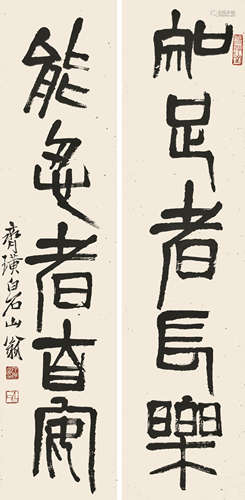 知足者長樂
能忍者自安
齊璜白石山翁